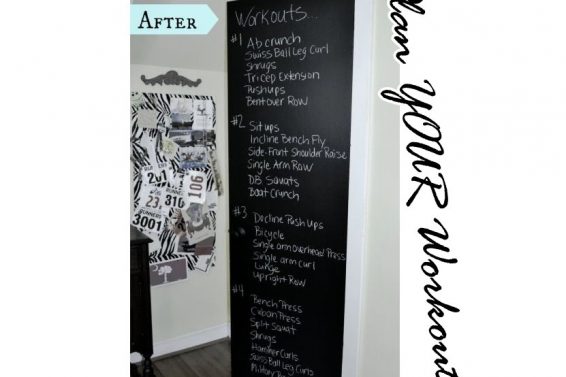 AFTER
Workouts...
#1 Ab crunch
Swiss Ball Leg Curl
Shrugs
Tricep Extension
Pushups
Bent over Row
#2 Sit ups
Incline Bench Fly
Side-Front Shoulder Raise
Single Arm Row
D.B. Squats
Boat Crunch
#3 Decline Push Ups
Bicycle
Single arm Overhead Press
Single arm curl
Lunge
Upright Row
#4 Bench Press
Cuban Press
Split Squat
Shrugs
Hammer Curls
Swiss Ball Leg Curls
RUNNERS
3001
310
201
106
lan YOUR Workout